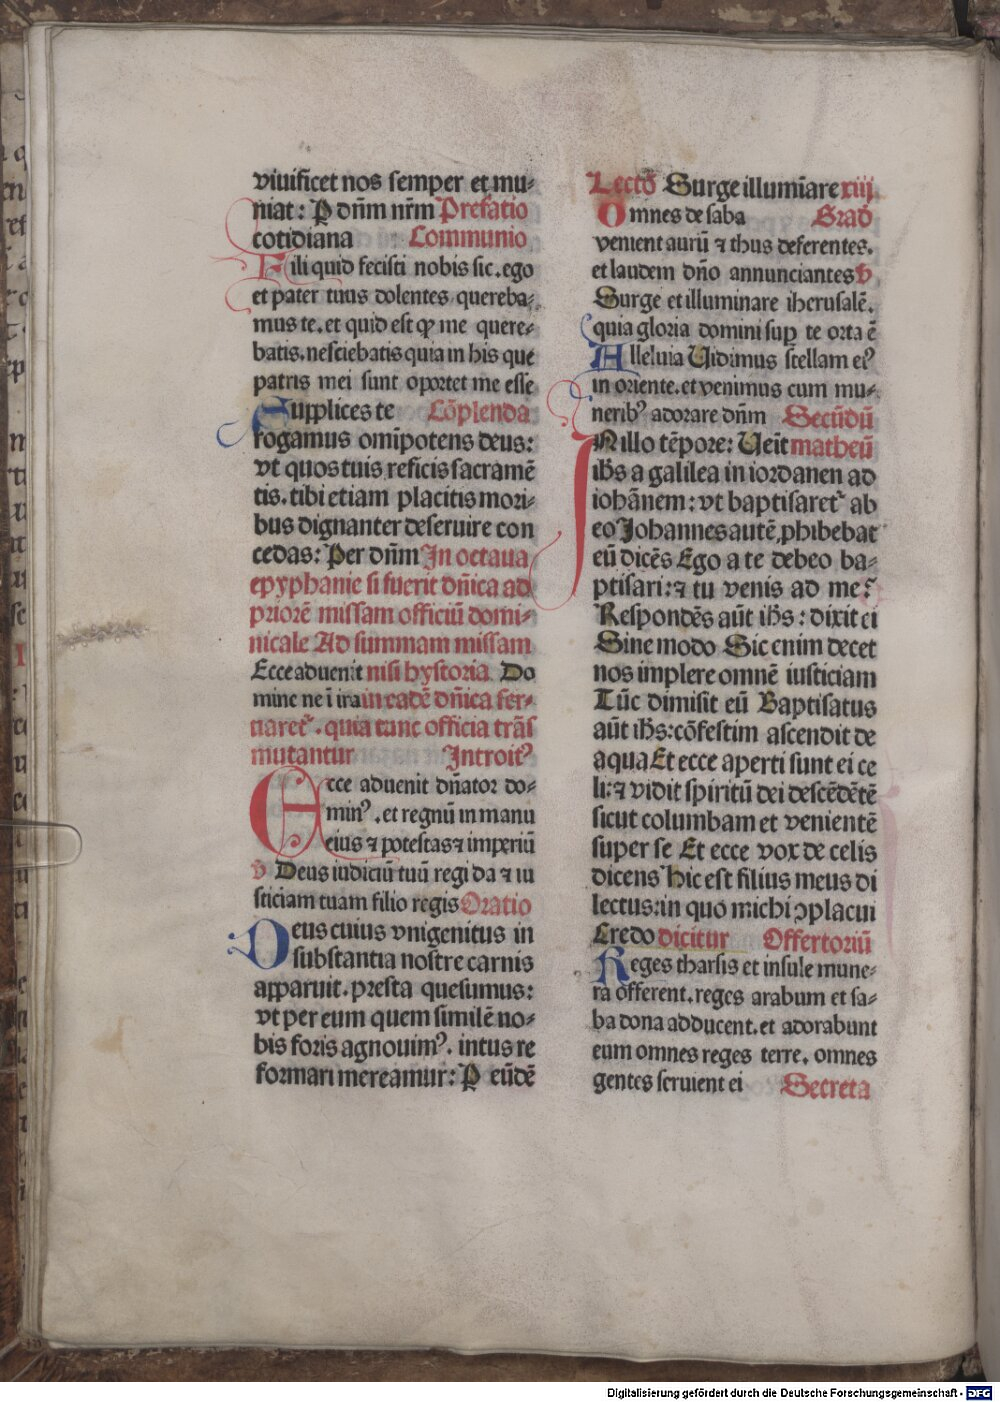 viuificet nos semper et mu-
niat: P dn̄m nr̄m Prefatio
cotidiana Communio
Fili quid fecisti nobis sic. ego
et pater tuus dolentes quereba-
mus te. et quid est qp me quere-
batis. nesciebatis quia in his que
patris mei sunt oportet me esse
Supplices te Cōplenda
rogamus omīpotens deus:
vt quos tuis reficis sacramē
tis. tibi etiam placitis mori-
bus dignanter deseruire con
cedas: Per dn̄m In octaua
epyphanie si fuerit dn̄ica ad
priorē missam officiū domi-
nicale Ad summam missam
Ecce aduenit nisi hystoria Do
mine ne ī ira in eadē dn̄ica fer-
uaret᷑. quia tunc officia trās
mutantur Introitꝰ
Ecce aduenit dn̄ator do-
minꝰ. et regnū in manu
eius ⁊ potestas ⁊ imperiū
v Deus iudiciū tuū regi da ⁊ iu
sticiam tuam filio regis Oratio
Deus cuius vnigenitus in
substantia nostre carnis
apparuit. presta quesumus:
vt per eum quem similē no-
bis foris agnouimꝰ. intus re
formari mereamur: P eūdē
Lectō Surge illumīare xiij
Omnes de saba Grad̄
venient aurū ⁊ thus deferentes.
et laudem dn̄o annunciantes v
Surge et illuminare iherusalē.
quia gloria domini sup̄ te orta ē
Alleluia Uidimus stellam eiꝰ
in oriente. et venimus cum mu-
neribꝰ adorare dn̄m Secūdū
IN illo tēpore: Ueīt matheū
ih̄s a galilea in iordanen ad
iohānem: vt baptisaret᷑ ab
eo Johannes autē ꝓhibebat
eū dicēs Ego a te debeo ba-
ptisari: ⁊ tu venis ad me?
Respondēs aūt ih̄s: dixit ei
Sine modo Sic enim decet
nos implere omnē iusticiam
Tūc dimisit eū Baptisatus
aūt ih̄s: cōfestim ascendit de
aqua Et ecce aperti sunt ei ce
li: ⁊ vidit spiritū dei descēdētē
sicut columbam et venientē
super se Et ecce vox de celis
dicens Hic est filius meus di
lectus: in quo michi ꝯplacui
Credo dicitur Offertoriū
Reges tharsis et insule mune-
ra offerent. reges arabum et sa-
ba dona adducent. et adorabunt
eum omnes reges terre. omnes
gentes seruient ei Secreta
Digitalisierung gefördert durch die Deutsche Forschungsgemeinschaft - DFG